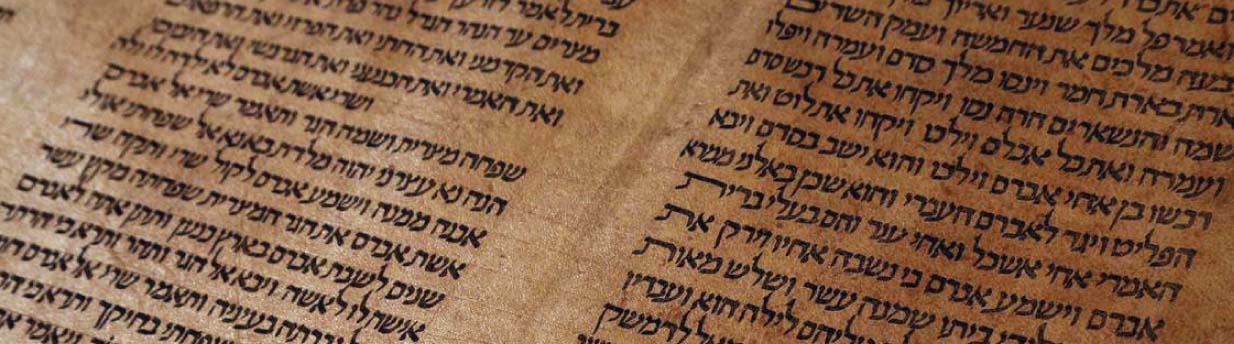 ואמרפל מלך שנער ואריוך מלך
בעה מלכים את החמשה ועמק השדים
ארת בארת חמר וינסו מלך סדם ועמרה ויפלו
שמה והנשארים הרה נסו ויקחו את כל רכש סדם
ועמרה ואת כל אכלם וילכו ויקחו את לוט ואת
רכשו בן אחי אברם וילכו והוא ישב בסדם ויבא
הפליט ויגד לאברם העברי והוא שכן באלני ממרא
האמרי אחי אשכל ואחי ענר והם בעלי ברית
אברם וישמע אברם כי נשבה אחיו וירק את
ילידי ביתו שמנה עשר ושלש מאות
עליהם לילה הוא ועבדיו
לדמשק
ברית לאמר
מצרים עד הנהר הגדל נהר פרת את
ואת הקדמני ואת החתי ואת הפרזי ואת הרפאים
ואת האמרי ואת הכנעני ואת הגרגשי ואת היבוסי
ושרי אשת אברם לא ילדה לו ולה
שפחה מצרית ושמה הגר ותאמר שרי אל אברם
הנה נא עצרני יהוה מלדת בא נא אל שפחתי אולי
אבנה ממנה וישמע אברם לקול שרי ותקח שרי
אשת אברם את הגר המצרית שפחתה מקץ עשר
שנים לשבת אברם בארץ כנען ותתן אתה לאברם
אישה לו לאשה ויבא אל הגר ותהר ותרא כי הרתה
גברתה בעיניה ותאמר שרי אל אברם
שפחתי בחיקך ותרא כי
ויאמר